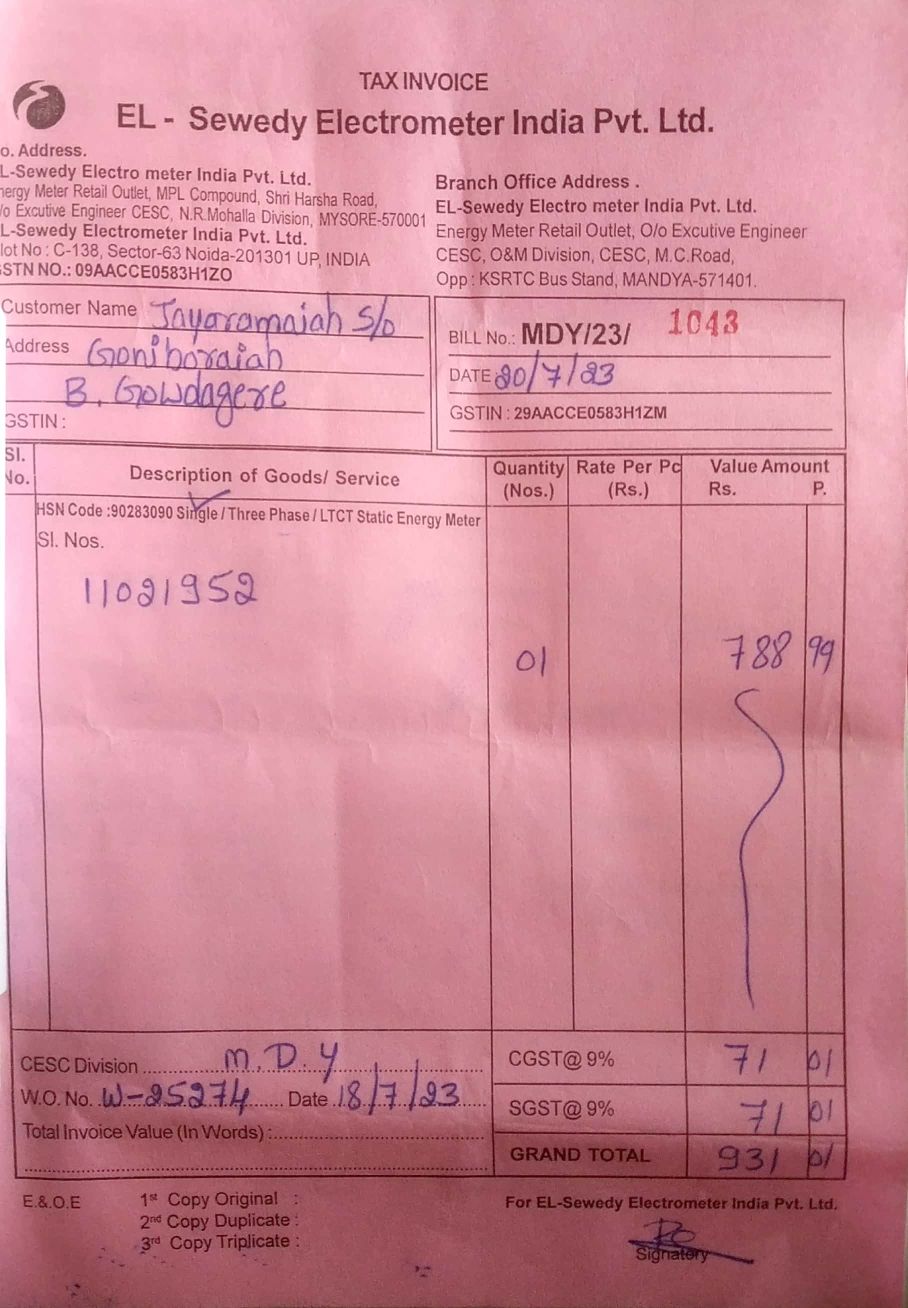 TAX INVOICE
EL - Sewedy Electrometer India Pvt. Ltd.
o. Address.
L-Sewedy Electro meter India Pvt. Ltd.
nergy Meter Retail Outlet, MPL Compound, Shri Harsha Road,
/o Excutive Engineer CESC, N.R.Mohalla Division, MYSORE-570001
L-Sewedy Electrometer India Pvt. Ltd.
lot No : C-138, Sector-63 Noida-201301 UP, INDIA
STN NO.: 09AACCE0583H1ZO
Branch Office Address .
EL-Sewedy Electro meter India Pvt. Ltd.
Energy Meter Retail Outlet, O/o Excutive Engineer
CESC, O&M Division, CESC, M.C.Road,
Opp : KSRTC Bus Stand, MANDYA-571401.
Customer Name Jayaramaiah S/o
Address Goniboraiah
B. Gowdagere
GSTIN :
BILL No.: MDY/23/ 1043
DATE 20/7/23
GSTIN : 29AACCE0583H1ZM
Sl. No. Description of Goods/ Service Quantity (Nos.) Rate Per Pc (Rs.) Value Amount Rs. P.
HSN Code :90283090 Single / Three Phase / LTCT Static Energy Meter
Sl. Nos.
11021952
01 788 99
CESC Division M.D.Y
W.O. No. W-25274 Date 18/7/23
Total Invoice Value (In Words) :
CGST@ 9% 71 01
SGST@ 9% 71 01
GRAND TOTAL 931 01
E.&.O.E
1st Copy Original :
2nd Copy Duplicate :
3rd Copy Triplicate :
For EL-Sewedy Electrometer India Pvt. Ltd.
Signatory